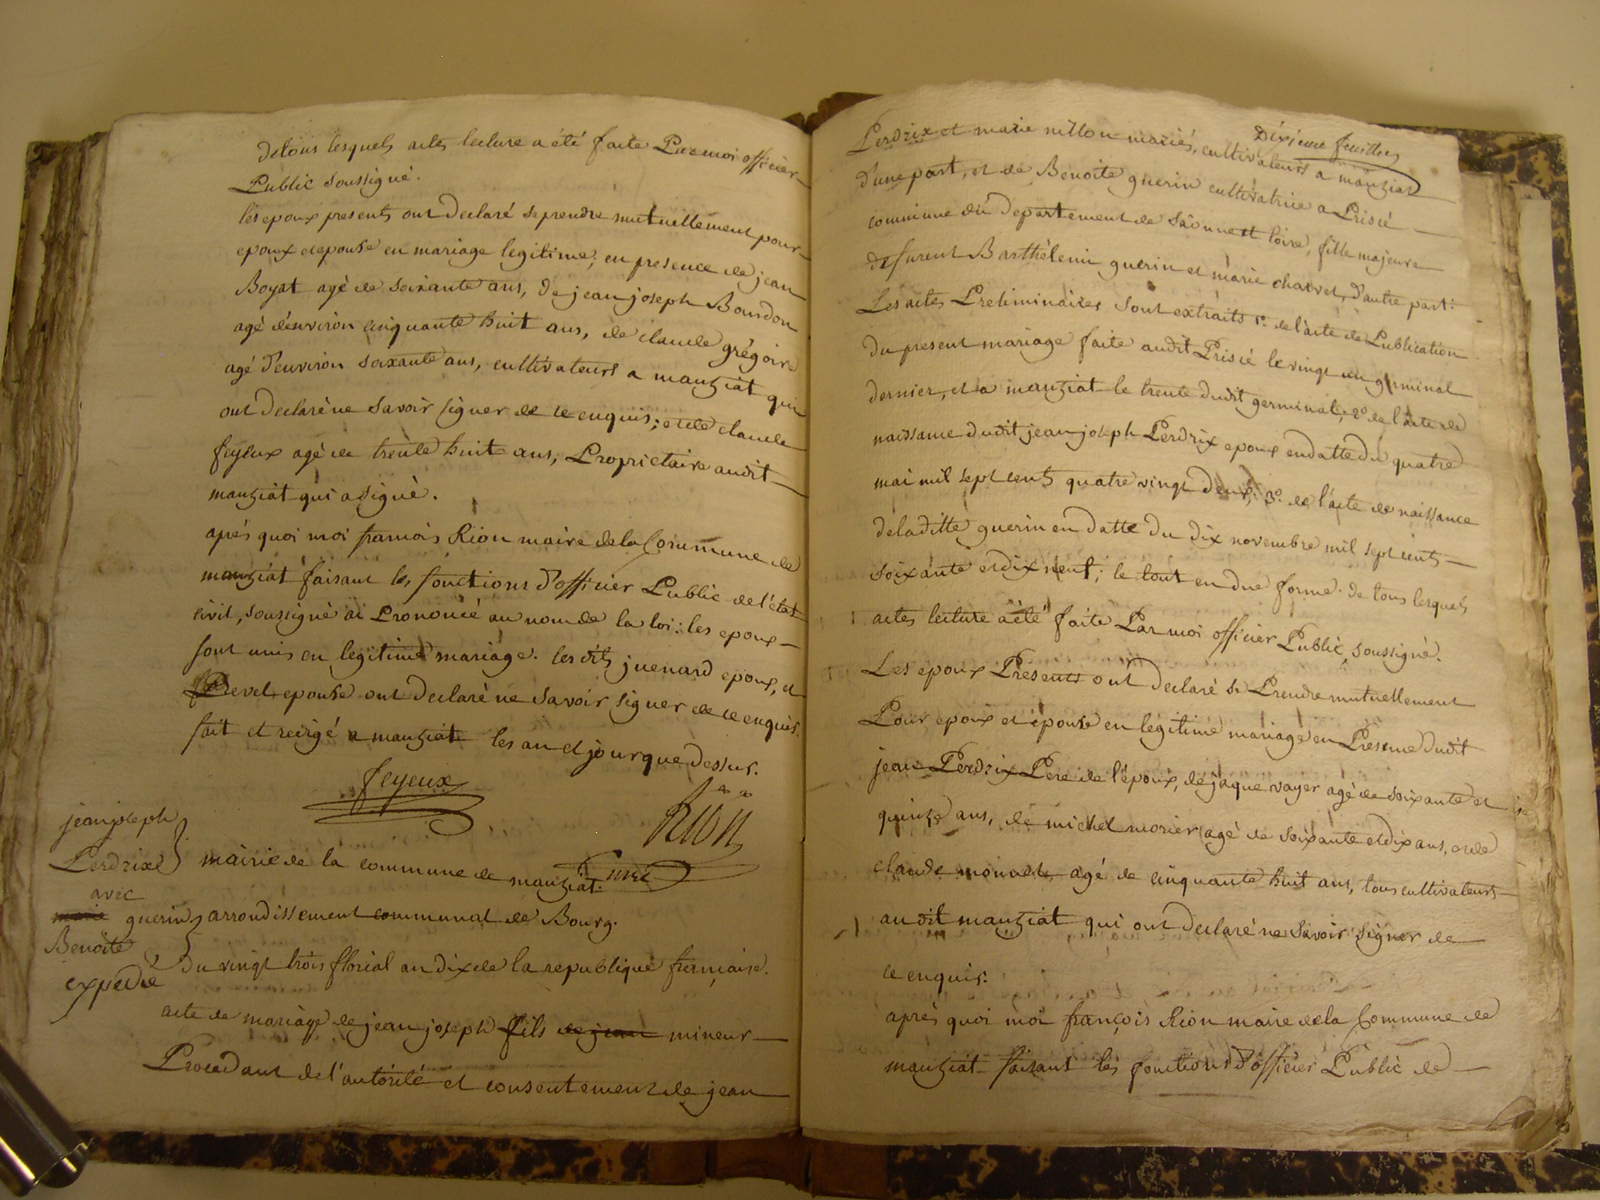 de tous lesquels actes lecture a été faite Par moi officier
Public soussigné.
les epoux presents ont declaré se prendre mutuellement pour
epoux et epouse en mariage legitime; en presence de jean
Boyat agé de soixante ans, de jean joseph Bourdon
agé d'environ cinquante huit ans, de claude grégoire
agé d'environ soixante ans, cultivateurs a manziat qui
ont declaré ne savoir signer de ce enquis; et de claude
feyeux agé de trente huit ans, Proprietaire audit
manziat qui a signé.
aprés quoi moi françois Rion maire de la Commune de
manziat faisant les fonctions d'officier Public de l'état
civil, soussigné ai Prononcé au nom de la loi: les epoux
sont unis en legitime mariage. les dits juenard epoux, et
Prevel epouse ont declaré ne savoir signer de ce enquis.
fait et redigé a manziat les an et jour que dessus.
feyeux
Rion
jean joseph
Perdrix
avec
marie guerin
Benoite
expedié
mairie de la commune de manziat.
arrondissement communal de Bourg.
Du vingt trois floréal an dix de la republique française.
acte de mariage de jean joseph fils de jean mineur
Procedant de l'autorité et consentement de jean
Dixieme feuillet
Perdrix et marie nillon mariés, cultivateurs a manziat
d'une part, et de Benoite guerin cultivatrice a Prisié
commune du departement de Saonne et loire, fille majeure
de furent Barthélemi guerin et marie charvet, d'autre part:
Les actes Preliminaires sont extraits 1º. de l'acte de Publication
du present mariage faite audit Prisié le vingt un germinal
dernier, et a manziat le trente dudit germinal, 2º de l'acte de
naissance dudit jean joseph Perdrix epoux en datte du quatre
mai mil sept cents quatre vingt deux; 3º. de l'acte de naissance
de la ditte guerin en datte du dix novembre mil sept cents
soixante et dix neuf; le tout en due forme. de tous lesquels
actes lecture a été faite Par moi officier Public, soussigné.
Les epoux Présents ont declaré se Prendre mutuellement
Pour epoux et épouse en legitime mariage en Présence dudit
jean Perdrix Pere de l'époux, de jaque vayer agé de soixante et
quinze ans, de michel morier agé de soixante et dix ans, et de
claude agé de cinquante huit ans, tous cultivateurs
au dit manziat qui ont declaré ne savoir signer de
ce enquis.
aprés quoi moi françois Rion maire de la Commune de
manziat faisant les fonctions d'officier Public de